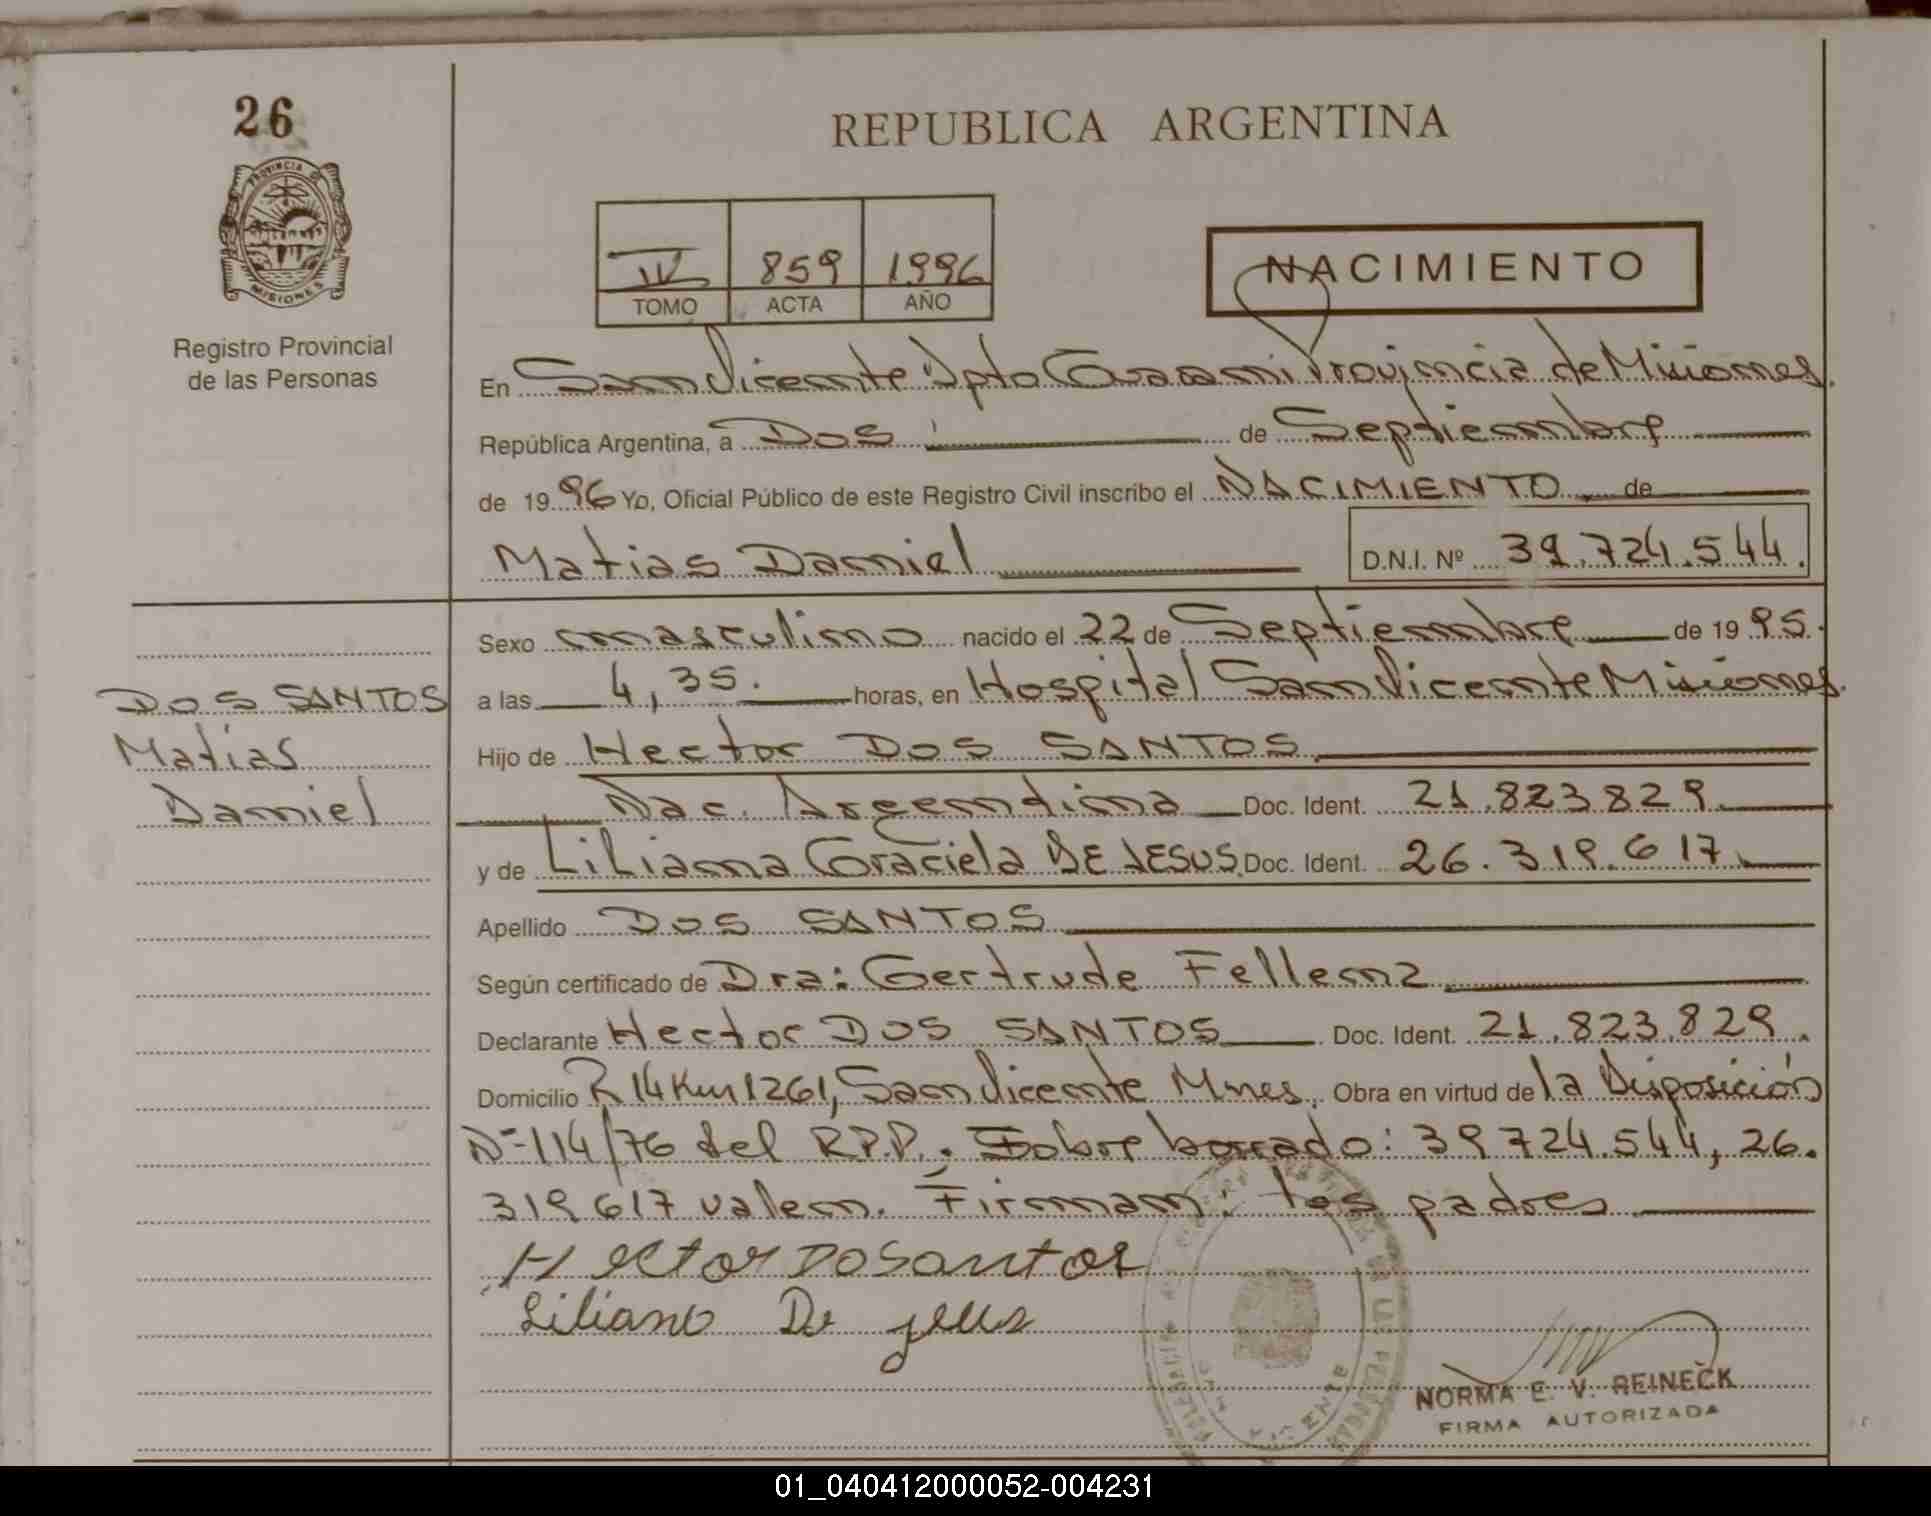 26
REPUBLICA ARGENTINA
PROVINCIA DE
MISIONES
Registro Provincial
de las Personas
IV 859 1996
TOMO ACTA AÑO
NACIMIENTO
En San Vicente Dpto Guarani Provincia de Misiones.
República Argentina, a Dos de Septiembre
de 1996 Yo, Oficial Público de este Registro Civil inscribo el NACIMIENTO de
Matias Daniel D.N.I. Nº 39.724.544.
Sexo masculino nacido el 22 de Septiembre de 1995.
a las 4,35. horas, en Hospital San Vicente Misiones.
Hijo de Hector DOS SANTOS
Nac. Argentina Doc. Ident. 21.823.829.
y de Liliana Graciela DE JESUS. Doc. Ident. 26.319.617.
Apellido DOS SANTOS
Según certificado de Dra: Gertrude Fellenz
Declarante Hector DOS SANTOS Doc. Ident. 21.823.829.
Domicilio R 14 Km 1261, San Vicente Mnes. Obra en virtud de la Disposición
Nº 114/76 del R.P.P. Sobre borrado: 39.724.544, 26.
319.617 valen. Firman: los padres
DOS SANTOS
Matías
Daniel
Hector DoSantos
Liliana De Jesus
NORMA E. V. REINECK
FIRMA AUTORIZADA
01_040412000052-004231